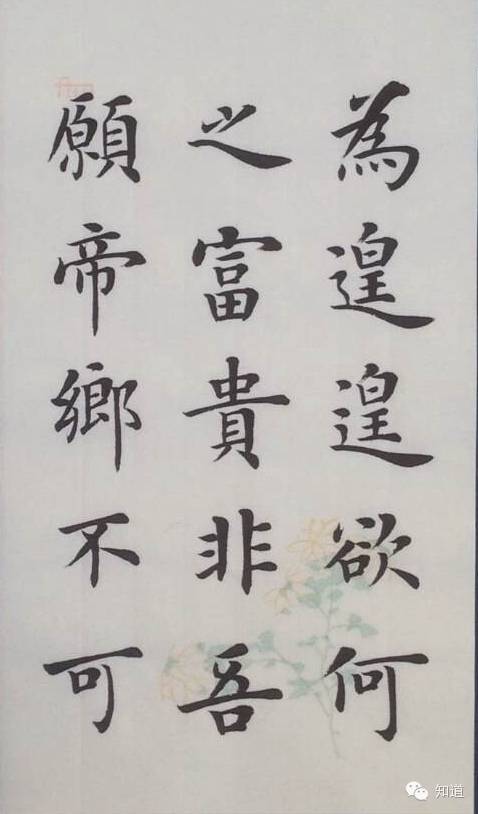 為遑遑欲何
之富貴非吾
願帝鄉不可
知道